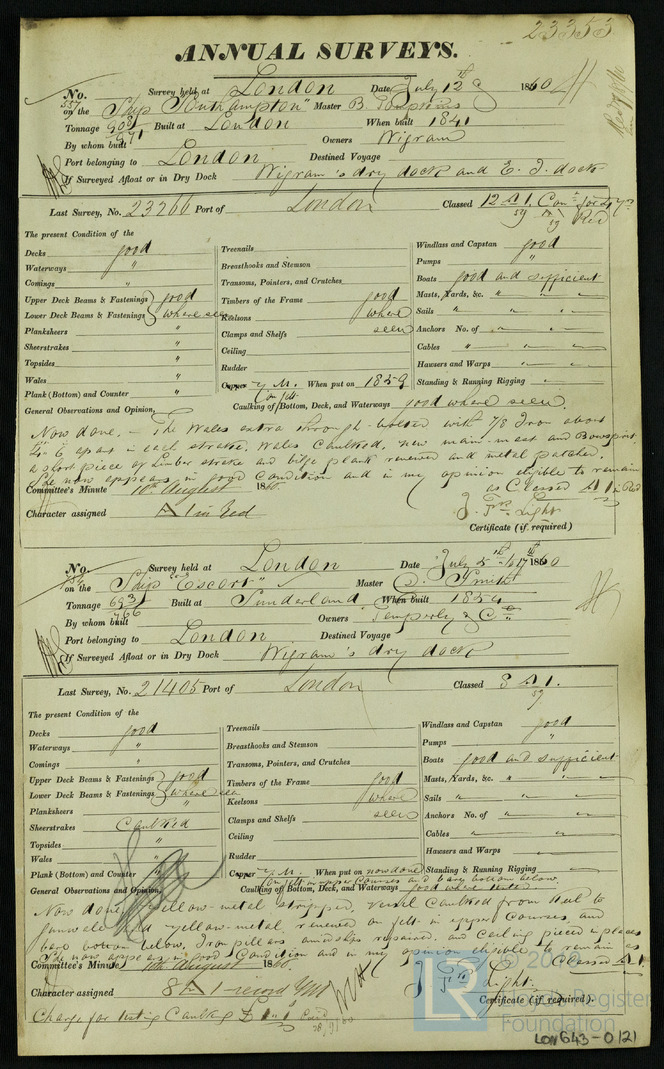 23353
ANNUAL SURVEYS.
No. 557 Survey held at London Date July 12th 1860
on the Ship "Southampton" Master B. Tompkins
Tonnage 908 971 Built at London When built 1841
By whom built Owners Wigram
Port belonging to London Destined Voyage
If Surveyed Afloat or in Dry Dock Wigram's dry dock and E. I. dock
Last Survey, No. 23266 Port of London Classed 12 A 1. Red
The present Condition of the
Decks good
Waterways "
Comings "
Upper Deck Beams & Fastenings } good
Lower Deck Beams & Fastenings } where seen
Planksheers "
Sheerstrakes "
Topsides "
Wales "
Plank (Bottom) and Counter "
Treenails
Breasthooks and Stemson
Transoms, Pointers, and Crutches
Timbers of the Frame good
Keelsons where
Clamps and Shelfs seen
Ceiling
Rudder
Copper Y. M. When put on 1859
on felt
Caulking of Bottom, Deck, and Waterways good where seen.
Windlass and Capstan good
Pumps "
Boats good and sufficient
Masts, Yards, &c. " " "
Sails " " "
Anchors No. of " " "
Cables " " "
Hawsers and Warps " "
Standing & Running Rigging "
General Observations and Opinion,
Now done. - The Wales extra through-bolted with 7/8 Iron about
apart in each strake, Wales Caulked, new main-mast and Bowsprit,
a short piece of limber strake and bilge plank renewed and metal patched.
She now appears in good Condition and in my opinion eligible to remain
as Classed A 1 in Red
Committee's Minute 10th August 1860.
Character assigned A 1 in Red
J. Fra. Light
Certificate (if required)
No. Survey held at London Date July 5th & 17th 1860
on the Ship "Escort" Master D. Smith
Tonnage 693 766 Built at Sunderland When built 1854
By whom built Owners Temperly & Co.
Port belonging to London Destined Voyage
If Surveyed Afloat or in Dry Dock Wigram's dry dock
Last Survey, No. 21405 Port of London Classed 8 A 1. 59
The present Condition of the
Decks good
Waterways "
Comings "
Upper Deck Beams & Fastenings } good
Lower Deck Beams & Fastenings } where seen
Planksheers "
Sheerstrakes Caulked
Topsides "
Wales "
Plank (Bottom) and Counter "
Treenails
Breasthooks and Stemson
Transoms, Pointers, and Crutches
Timbers of the Frame good
Keelsons where
Clamps and Shelfs seen
Ceiling
Rudder
Copper Y. M. When put on now done
on felt in upper courses and bare bottom below
Caulking of Bottom, Deck, and Waterways good where tested
Windlass and Capstan good
Pumps "
Boats good and sufficient
Masts, Yards, &c. " " "
Sails " " "
Anchors No. of " " "
Cables " " "
Hawsers and Warps " "
Standing & Running Rigging "
General Observations and Opinion,
Now done, Yellow-metal stripped, Vessel Caulked from Keel to
gunwale and yellow-metal renewed on felt in upper Courses, and
bare bottom below, Iron pillars amidships repaired, and Ceiling pieced in places
She now appears in good Condition and in my opinion eligible to remain as
Classed A 1
Committee's Minute 10th August 1860.
Character assigned 8 A 1 record YM
J. Fra. Light
Certificate (if required).
Charge for testing Caulking £1"1"
LR © 20
Lloyd's Register
Foundation
LON643-0121